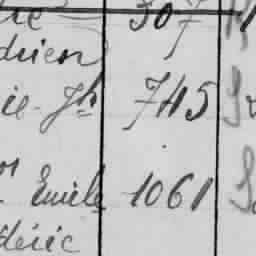 307
drien
ie-Jh 745
Emile 1061
déric